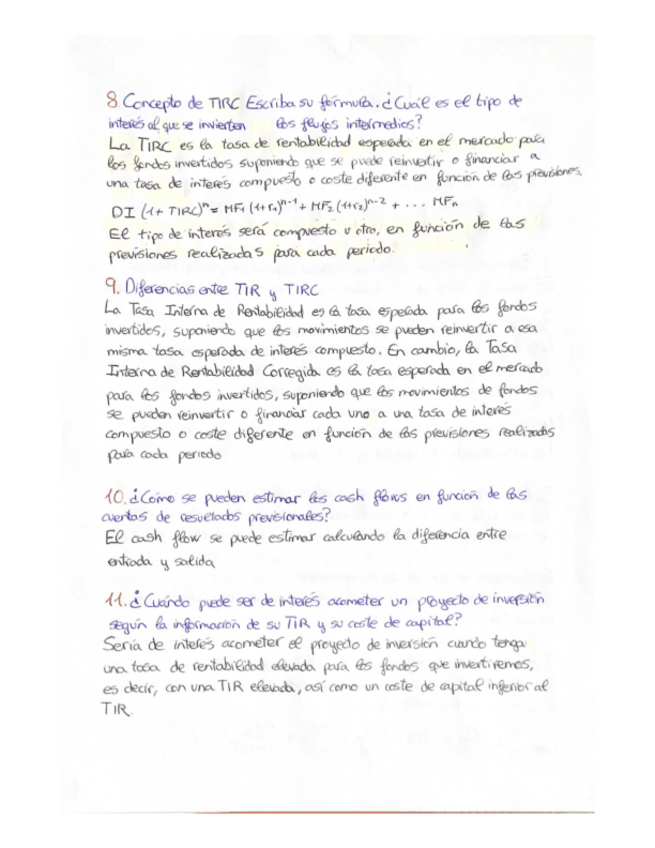 8 Concepto de TIRC Escriba su fórmula. ¿Cuál es el tipo de
interés al que se invierten los flujos intermedios?
La TIRC es la tasa de rentabilidad esperada en el mercado para
los fondos invertidos suponiendo que se puede reinvertir o financiar a
una tasa de interés compuesto o coste diferente en función de las previsiones.
DI (1+ TIRC)ⁿ = MF₁ (1+r₁)ⁿ⁻¹ + MF₂ (1+r₂)ⁿ⁻² + ... MFₙ
El tipo de interés será compuesto u otro, en función de las
previsiones realizadas para cada periodo.
9. Diferencias entre TIR y TIRC
La Tasa Interna de Rentabilidad es la tasa esperada para los fondos
invertidos, suponiendo que los movimientos se pueden reinvertir a esa
misma tasa esperada de interés compuesto. En cambio, la Tasa
Interna de Rentabilidad Corregida es la tasa esperada en el mercado
para los fondos invertidos, suponiendo que los movimientos de fondos
se pueden reinvertir o financiar cada uno a una tasa de interés
compuesto o coste diferente en función de las previsiones realizadas
para cada periodo
10. ¿Cómo se pueden estimar los cash flows en función de las
cuentas de resultados previsionales?
El cash flow se puede estimar calculando la diferencia entre
entrada y salida
11. ¿Cuándo puede ser de interés acometer un proyecto de inversión
según la información de su TIR y su coste de capital?
Sería de interés acometer el proyecto de inversión cuando tenga
una tasa de rentabilidad elevada para los fondos que invertiremos,
es decir, con una TIR elevada, así como un coste de capital inferior al
TIR.